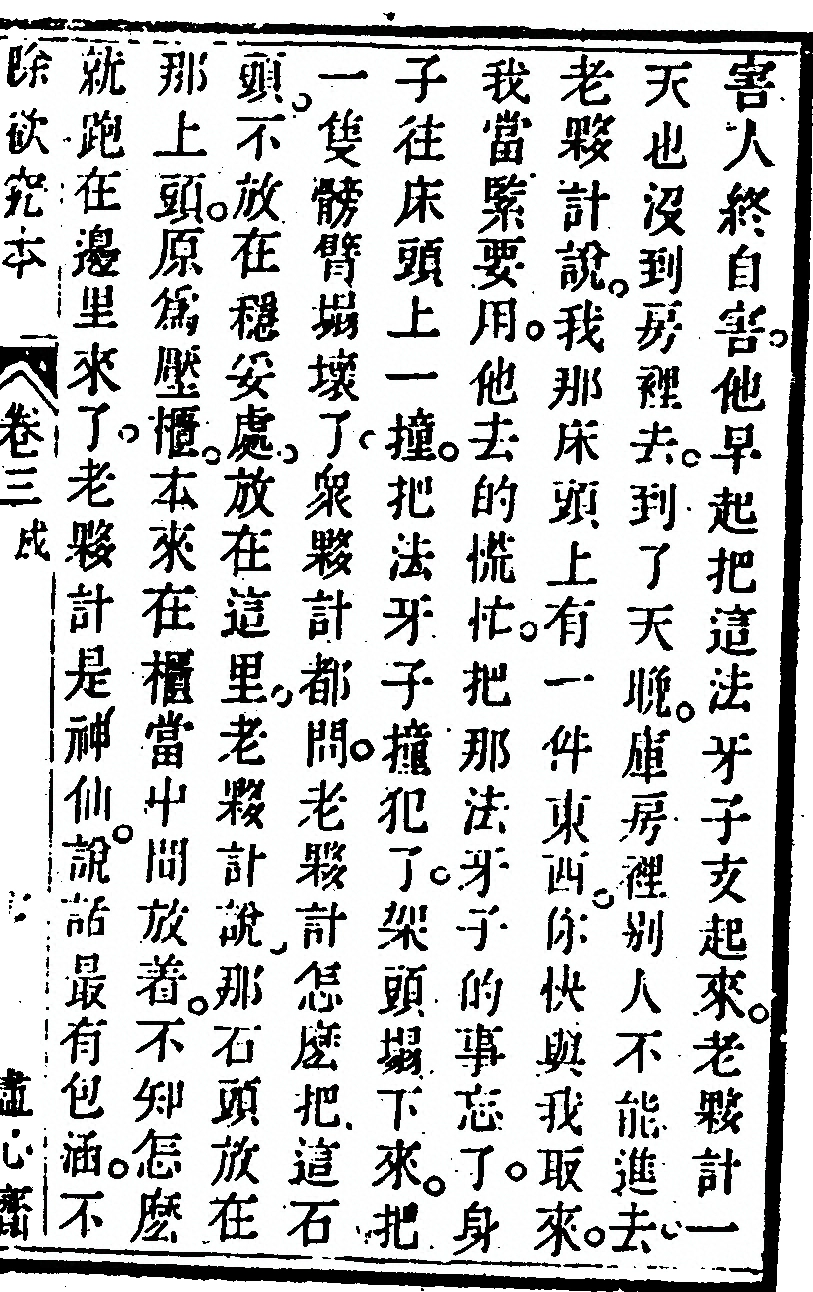 害人終自害。他早起把這法牙子支起來。老夥計一
天也沒到房裡去。到了天晚。庫房裡別人不能進去。
老夥計說。我那床頭上有一件東西。你快與我取來。
我當緊要用。他去的慌忙。把那法牙子的事忘了。身
子往床頭上一撞。把法牙子撞犯了。架頭塌下來。把
一隻髈臂塌壞了。衆夥計都問。老夥計怎麽把這石
頭。不放在穩妥處。放在這里。老夥計說。那石頭放在
那上頭。原爲壓櫃。本來在櫃當中間放着。不知怎麽
就跑在邊里來了。老夥計是神仙。說話最有包涵。不
除欲究本
卷三
戌
盡心齋